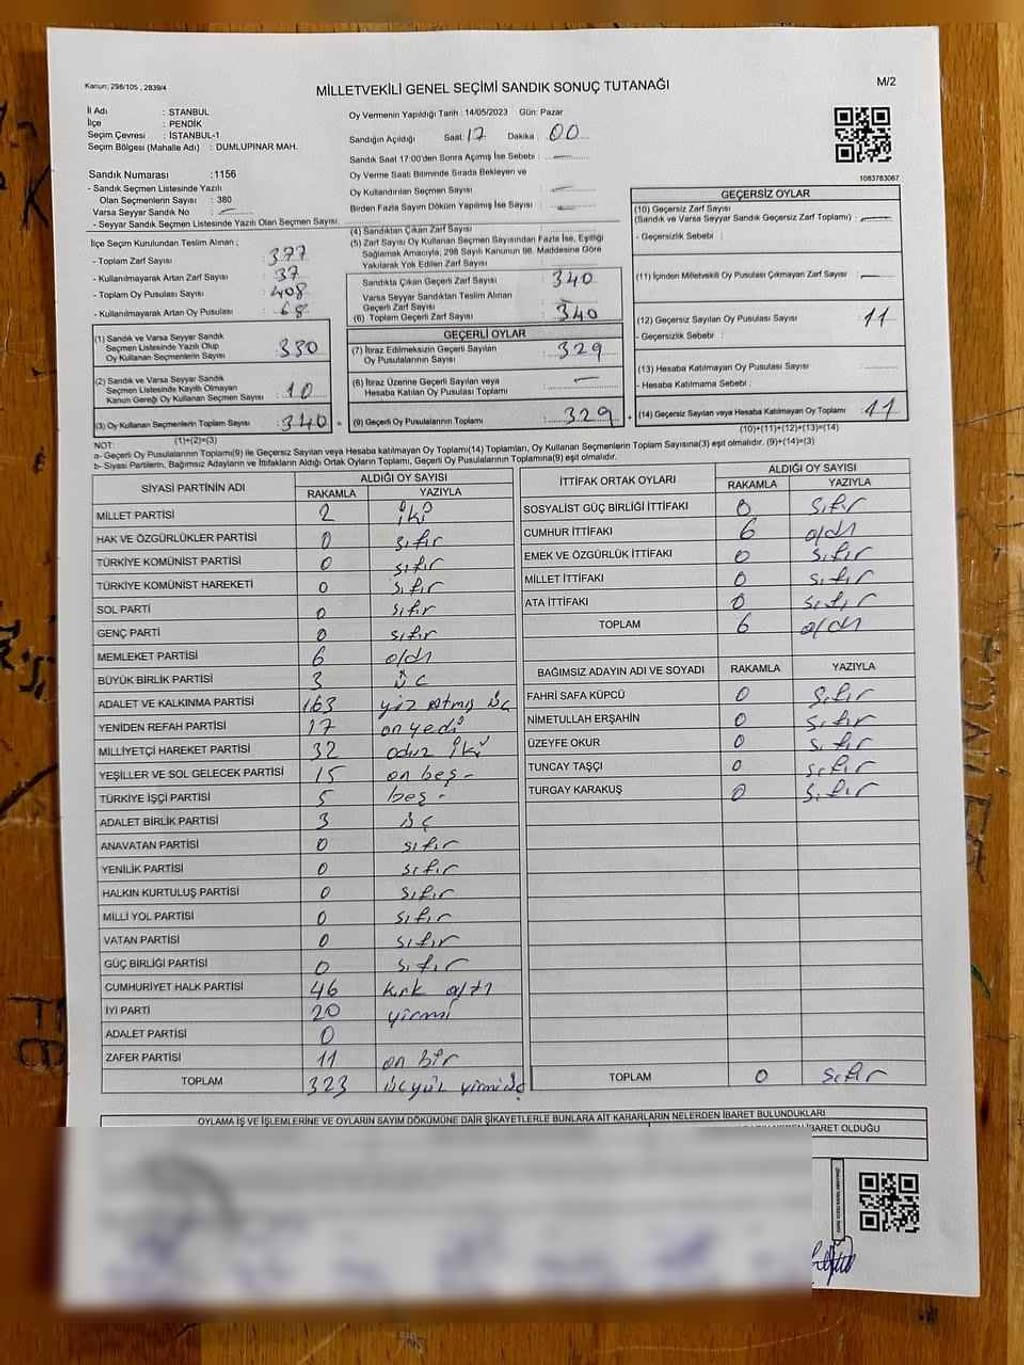 Kanun: 298/105 , 2839/4
MİLLETVEKİLİ GENEL SEÇİMİ SANDIK SONUÇ TUTANAĞI
M/2
İl Adı : STANBUL
İlçe : PENDİK
Seçim Çevresi : İSTANBUL-1
Seçim Bölgesi (Mahalle Adı) : DUMLUPINAR MAH.
Oy Vermenin Yapıldığı Tarih : 14/05/2023 Gün: Pazar
Sandığın Açıldığı Saat: 17 Dakika 00
Sandık Saat 17:00'den Sonra Açımış İse Sebebi : —
Oy Verme Saati Bitiminde Sırada Bekleyen ve
Oy Kullandırılan Seçmen Sayısı : —
Birden Fazla Sayım Döküm Yapılmış İse Sayısı : —
1083783067
Sandık Numarası :1156
- Sandık Seçmen Listesinde Yazılı
Olan Seçmenlerin Sayısı : 380
Varsa Seyyar Sandık No : —
- Seyyar Sandık Seçmen Listesinde Yazılı Olan Seçmen Sayısı:
İlçe Seçim Kurulundan Teslim Alınan ;
- Toplam Zarf Sayısı : 377
- Kullanılmayarak Artan Zarf Sayısı : 37
- Toplam Oy Pusulası Sayısı : 408
- Kullanılmayarak Artan Oy Pusulası : 68
(1) Sandık ve Varsa Seyyar Sandık
Seçmen Listesinde Yazılı Olup
Oy Kullanan Seçmenlerin Sayısı : 330
(2) Sandık ve Varsa Seyyar Sandık
Seçmen Listesinde Kayıtlı Olmayan
Kanun Gereği Oy Kullanan Seçmen Sayısı : 10
(3) Oy Kullanan Seçmenlerin Toplam Sayısı : 340
(1)+(2)=(3)
(4) Sandıktan Çıkan Zarf Sayısı :
(5) Zarf Sayısı Oy Kullanan Seçmen Sayısından Fazla İse, Eşitliği
Sağlamak Amacıyla, 298 Sayılı Kanunun 98. Maddesine Göre
Yakılarak Yok Edilen Zarf Sayısı
Sandıkta Çıkan Geçerli Zarf Sayısı : 340
Varsa Seyyar Sandıktan Teslim Alınan
Geçerli Zarf Sayısı : —
(6) Toplam Geçerli Zarf Sayısı : 340
GEÇERLİ OYLAR
(7) İtiraz Edilmeksizin Geçerli Sayılan
Oy Pusulalarının Sayısı : 329
(8) İtiraz Üzerine Geçerli Sayılan veya
Hesaba Katılan Oy Pusulası Toplamı : —
(9) Geçerli Oy Pusulalarının Toplamı : 329
GEÇERSİZ OYLAR
(10) Geçersiz Zarf Sayısı
(Sandık ve Varsa Seyyar Sandık Geçersiz Zarf Toplamı) : —
- Geçersizlik Sebebi :
(11) İçinden Milletvekili Oy Pusulası Çıkmayan Zarf Sayısı : —
(12) Geçersiz Sayılan Oy Pusulası Sayısı : 11
- Geçersizlik Sebebi :
(13) Hesaba Katılmayan Oy Pusulası Sayısı :
- Hesaba Katılmama Sebebi :
(14) Geçersiz Sayılan veya Hesaba Katılmayan Oy Toplamı : 11
(10)+(11)+(12)+(13)=(14)
NOT:
a- Geçerli Oy Pusulalarının Toplamı(9) ile Geçersiz Sayılan veya Hesaba katılmayan Oy Toplamı(14) Toplamları, Oy Kullanan Seçmenlerin Toplam Sayısına(3) eşit olmalıdır. (9)+(14)=(3)
b- Siyasi Partilerin, Bağımsız Adayların ve İttifakların Aldığı Ortak Oyların Toplamı, Geçerli Oy Pusulalarının Toplamına(9) eşit olmalıdır.
SİYASİ PARTİNİN ADI ALDIĞI OY SAYISI
RAKAMLA YAZIYLA
MİLLET PARTİSİ 2 iki
HAK VE ÖZGÜRLÜKLER PARTİSİ 0 sıfır
TÜRKİYE KOMÜNİST PARTİSİ 0 sıfır
TÜRKİYE KOMÜNİST HAREKETİ 0 sıfır
SOL PARTİ 0 sıfır
GENÇ PARTİ 0 sıfır
MEMLEKET PARTİSİ 6 altı
BÜYÜK BİRLİK PARTİSİ 3 üç
ADALET VE KALKINMA PARTİSİ 163 yüz atmış üç
YENİDEN REFAH PARTİSİ 17 on yedi
MİLLİYETÇİ HAREKET PARTİSİ 32 otuz iki
YEŞİLLER VE SOL GELECEK PARTİSİ 15 on beş -
TÜRKİYE İŞÇİ PARTİSİ 5 beş -
ADALET BİRLİK PARTİSİ 3 üç
ANAVATAN PARTİSİ 0 sıfır
YENİLİK PARTİSİ 0 sıfır
HALKIN KURTULUŞ PARTİSİ 0 sıfır
MİLLİ YOL PARTİSİ 0 sıfır
VATAN PARTİSİ 0 sıfır
GÜÇ BİRLİĞİ PARTİSİ 0 sıfır
CUMHURİYET HALK PARTİSİ 46 kırk altı
İYİ PARTİ 20 yirmi
ADALET PARTİSİ 0
ZAFER PARTİSİ 11 on bir
TOPLAM 323 üçyüz yirmi üç
İTTİFAK ORTAK OYLARI ALDIĞI OY SAYISI
RAKAMLA YAZIYLA
SOSYALİST GÜÇ BİRLİĞİ İTTİFAKI 0 sıfır
CUMHUR İTTİFAKI 6 altı
EMEK VE ÖZGÜRLÜK İTTİFAKI 0 sıfır
MİLLET İTTİFAKI 0 sıfır
ATA İTTİFAKI 0 sıfır
TOPLAM 6 altı
BAĞIMSIZ ADAYIN ADI VE SOYADI RAKAMLA YAZIYLA
FAHRİ SAFA KÜPCÜ 0 sıfır
NİMETULLAH ERŞAHİN 0 sıfır
ÜZEYFE OKUR 0 sıfır
TUNCAY TAŞÇI 0 sıfır
TURGAY KARAKUŞ 0 sıfır
TOPLAM 0 sıfır
OYLAMA İŞ VE İŞLEMLERİNE VE OYLARIN SAYIM DÖKÜMÜNE DAİR ŞİKAYETLERLE BUNLARA AİT KARARLARIN NELERDEN İBARET BULUNDUKLARI
İBARET OLDUĞU